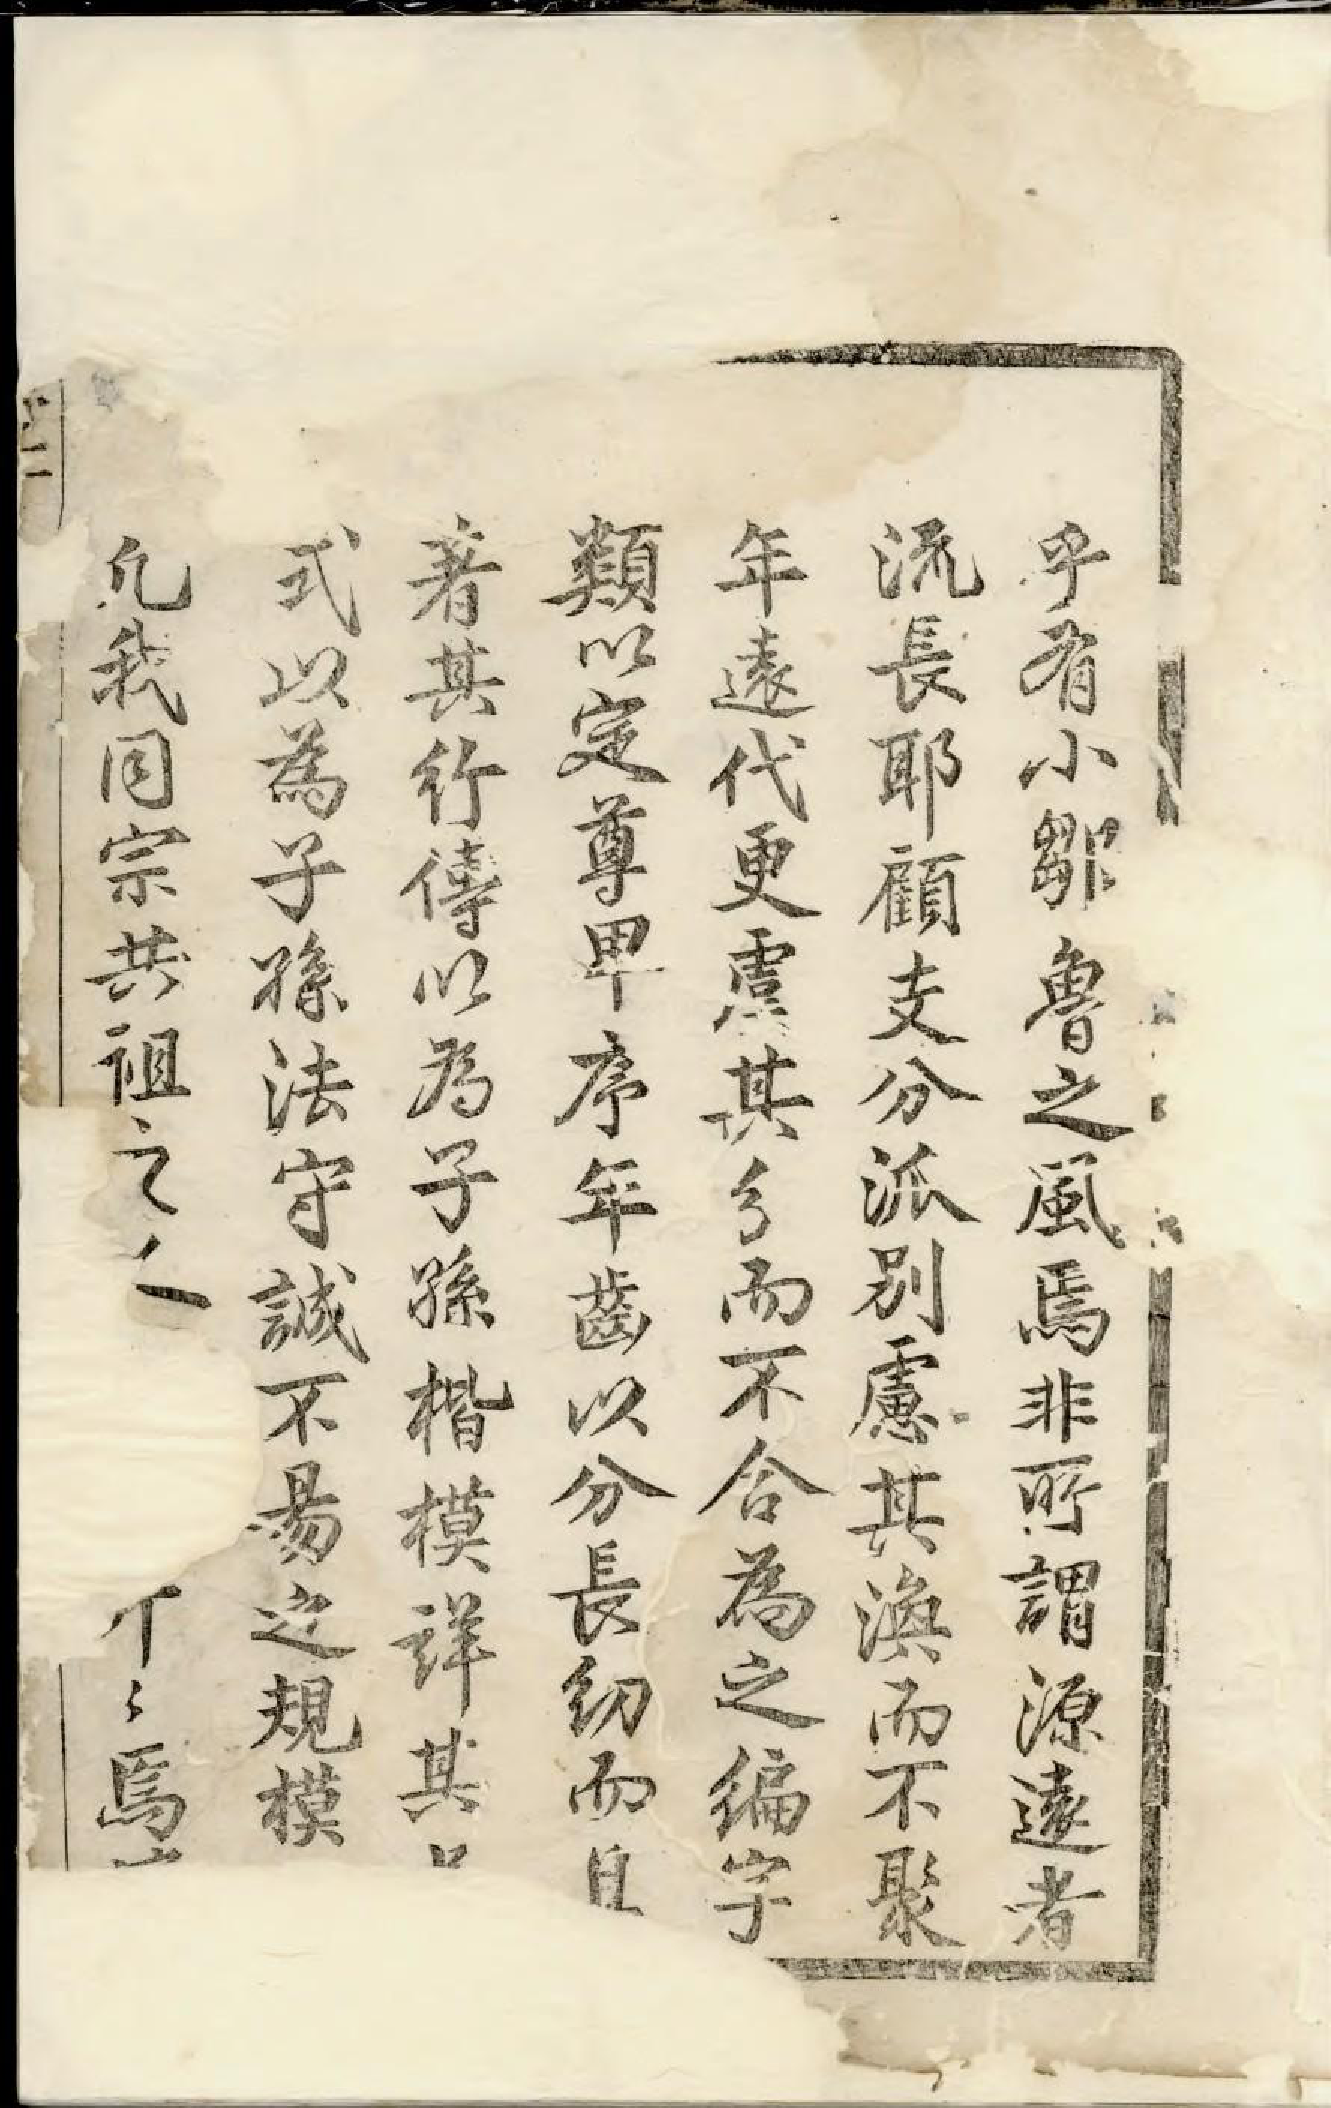 乎有小鄒魯之風焉非所謂源遠者
流長耶顧支分派別慮其渙而不聚
年遠代更慮其分而不合為之編字
類以定尊卑序年齒以分長幼而且
著其行傳以為子孫楷模詳其
式以為子孫法守誠不易之規模
凢我同宗共祖之人
焉
二